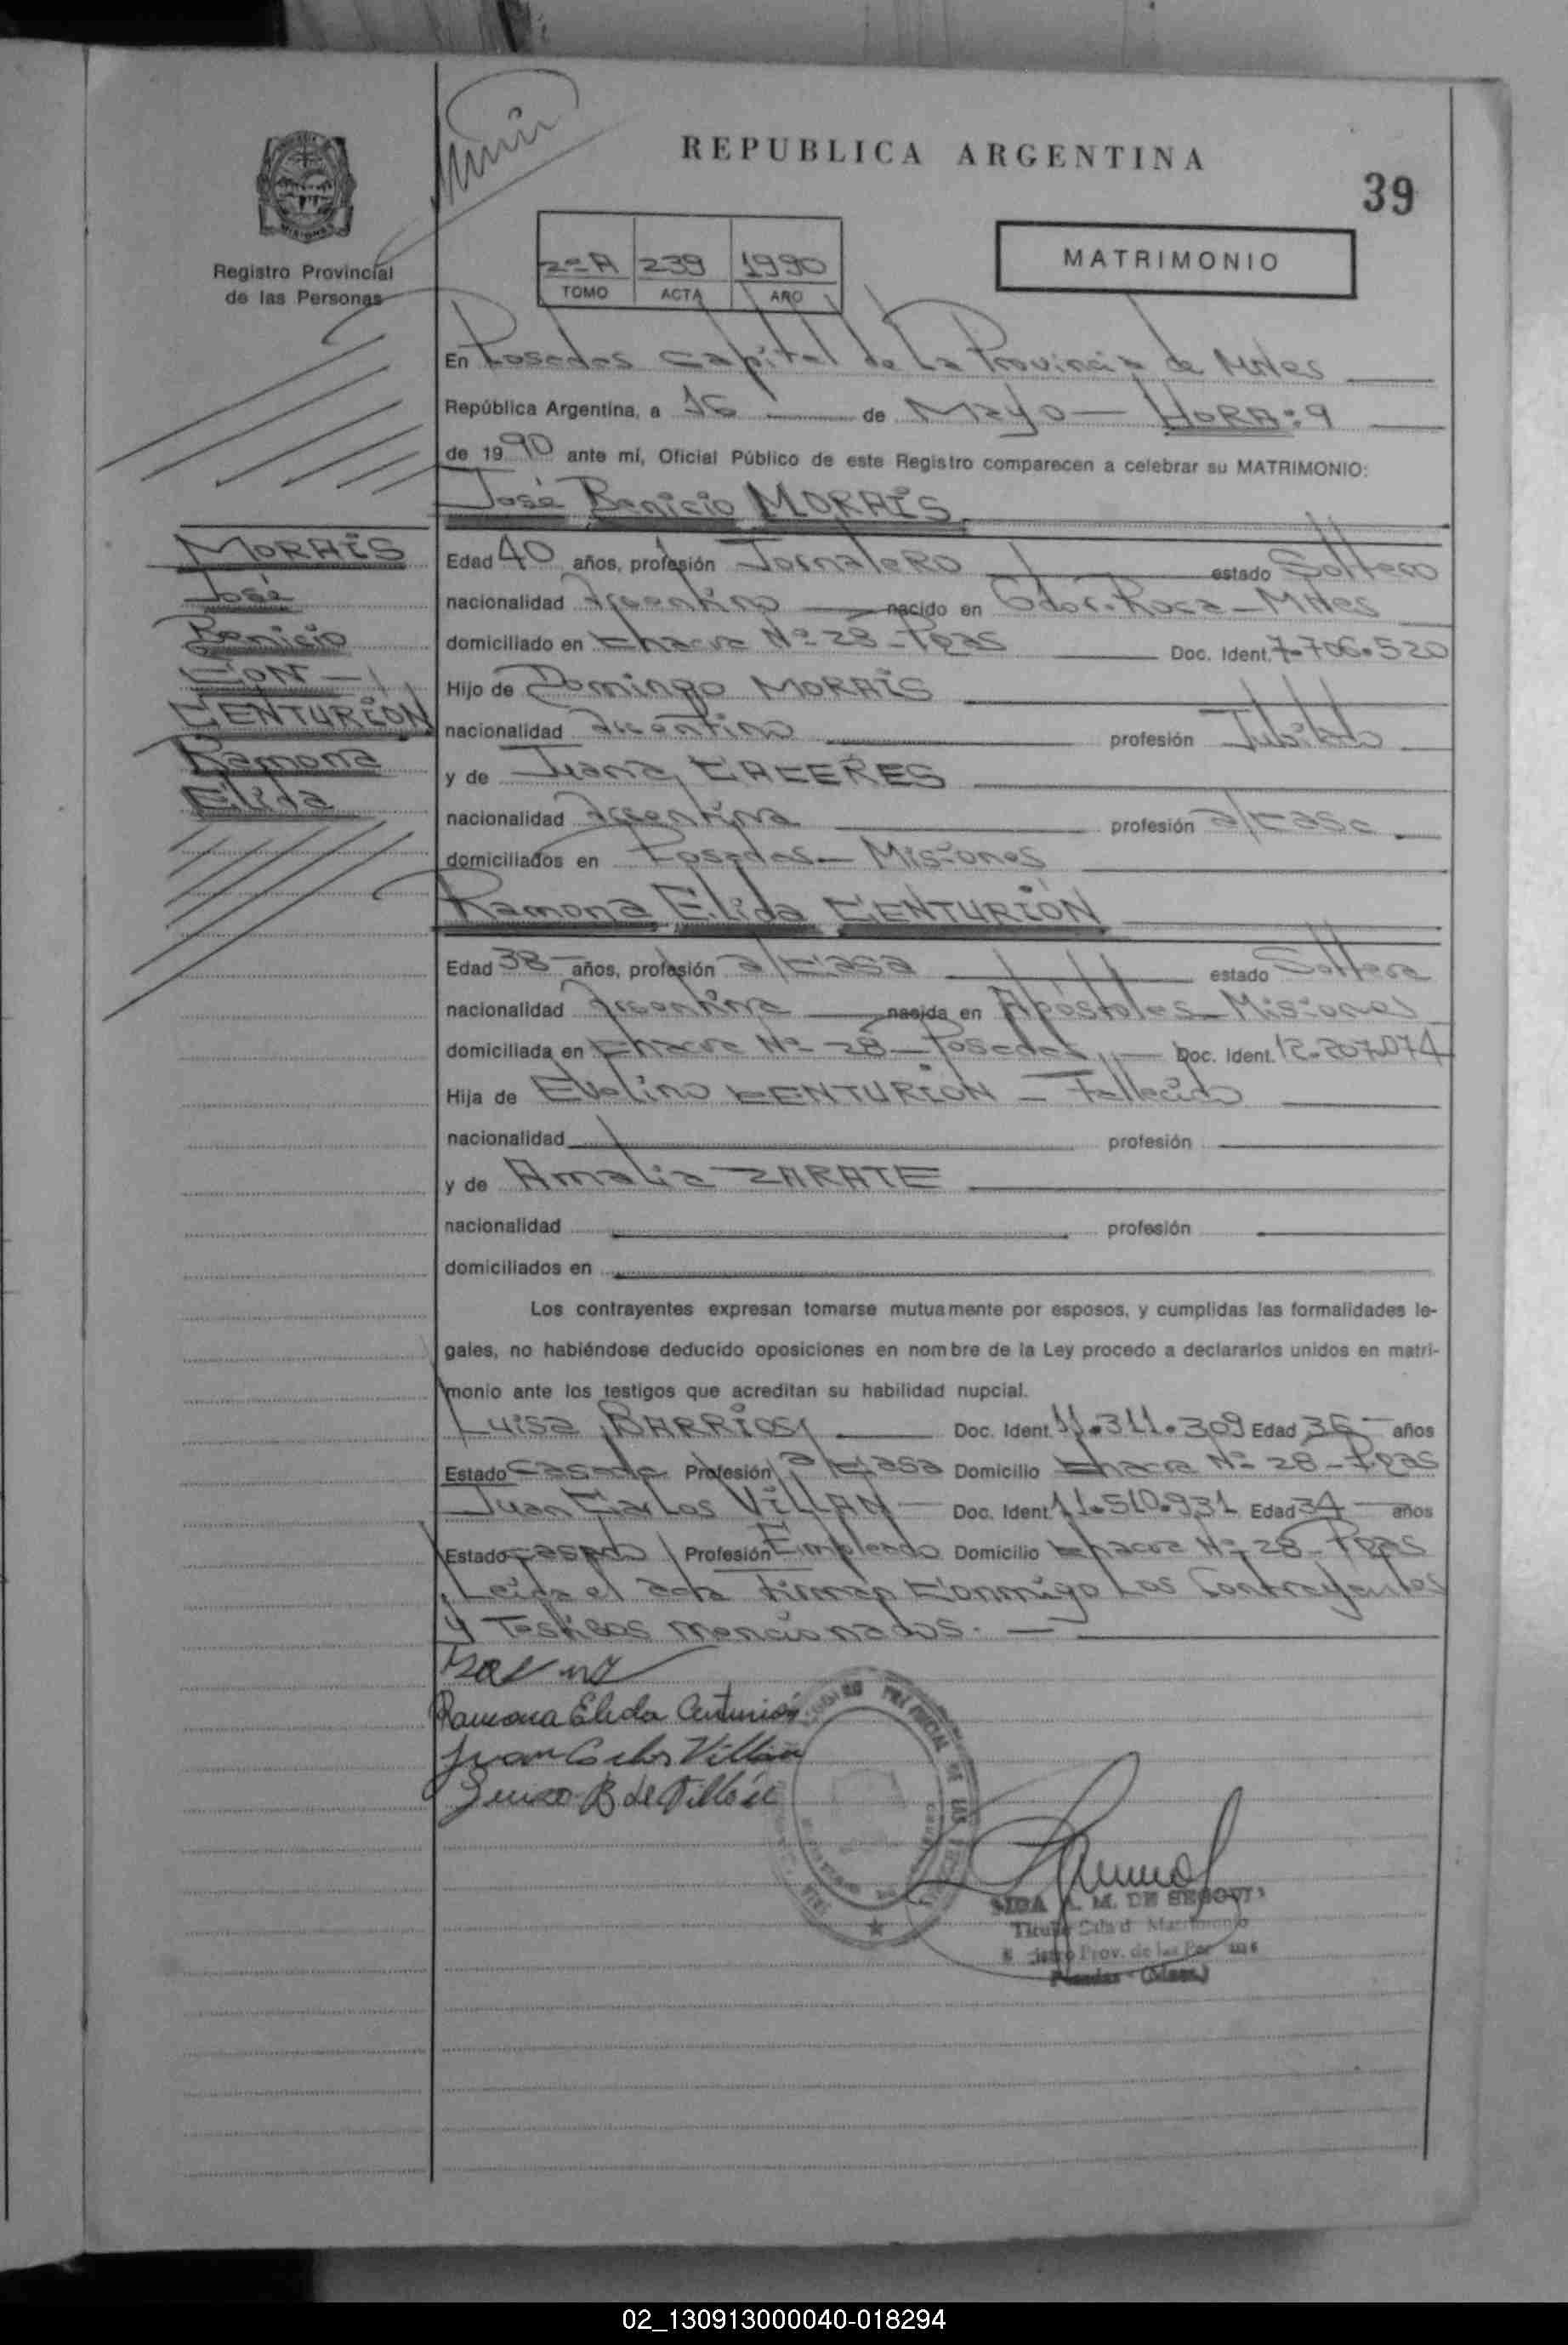 REPUBLICA ARGENTINA
39
MISIONES
Registro Provincial
de las Personas
2º A 239 1990
TOMO ACTA AÑO
MATRIMONIO
En Posadas Capital de La Provincia de Mnes
República Argentina, a 16 de Mayo — HORA: 9
de 1990 ante mí, Oficial Público de este Registro comparecen a celebrar su MATRIMONIO:
José Benicio MORAIS
MORAIS
José
Benicio
CON —
CENTURIÓN
Ramona
Elida
Edad 40 años, profesión Jornalero estado Soltero
nacionalidad Argentino nacido en Gdor. Roca - Mnes
domiciliado en Chacra Nº 28 - Pdas Doc. Ident. 7.706.520
Hijo de Domingo MORAIS
nacionalidad Argentino profesión Jubilado
y de Juana CACERES
nacionalidad Argentina profesión a/casa
domiciliados en Posadas - Misiones
Ramona Elida CENTURIÓN
Edad 38 años, profesión a/casa estado Soltera
nacionalidad Argentina nacida en Apóstoles - Misiones
domiciliada en Chacra Nº 28 - Posadas Doc. Ident. 12.207.074
Hija de Evelino CENTURIÓN - Fallecido
nacionalidad profesión
y de Amalia ZARATE
nacionalidad profesión
domiciliados en
Los contrayentes expresan tomarse mutuamente por esposos, y cumplidas las formalidades le-
gales, no habiéndose deducido oposiciones en nombre de la Ley procedo a declararlos unidos en matri-
monio ante los testigos que acreditan su habilidad nupcial.
Luisa BARRIOS Doc. Ident 11.311.309 Edad 36 años
Estado Casada Profesión a/casa Domicilio Chacra Nº 28 - Pdas
Juan Carlos VILLAN Doc. Ident 11.510.931 Edad 34 años
Estado casado Profesión Empleado Domicilio Chacra Nº 28 - Pdas
Leída el acta firman Conmigo Los Contrayentes
y Testigos mencionados.
Ramona Elida Centurión
Juan Carlos Villán
Luisa B de Villán
A. M. DE SEGOVI
Matrimonio
Prov. de las Per
Posadas - (Mnes.)
02_130913000040-018294